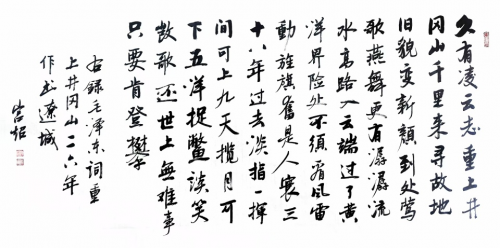 久有凌云志重上井
冈山千里来寻故地
旧貌变新颜到处莺
歌燕舞更有潺潺流
水高路入云端过了黄
洋界险处不须看风雷
动旌旗奋是人寰三
十八年过去弹指一挥
间可上九天揽月可
下五洋捉鳖谈笑
凯歌还世上無难事
只要肯登攀
右録毛泽东词重
上井冈山二六年
作於遼城